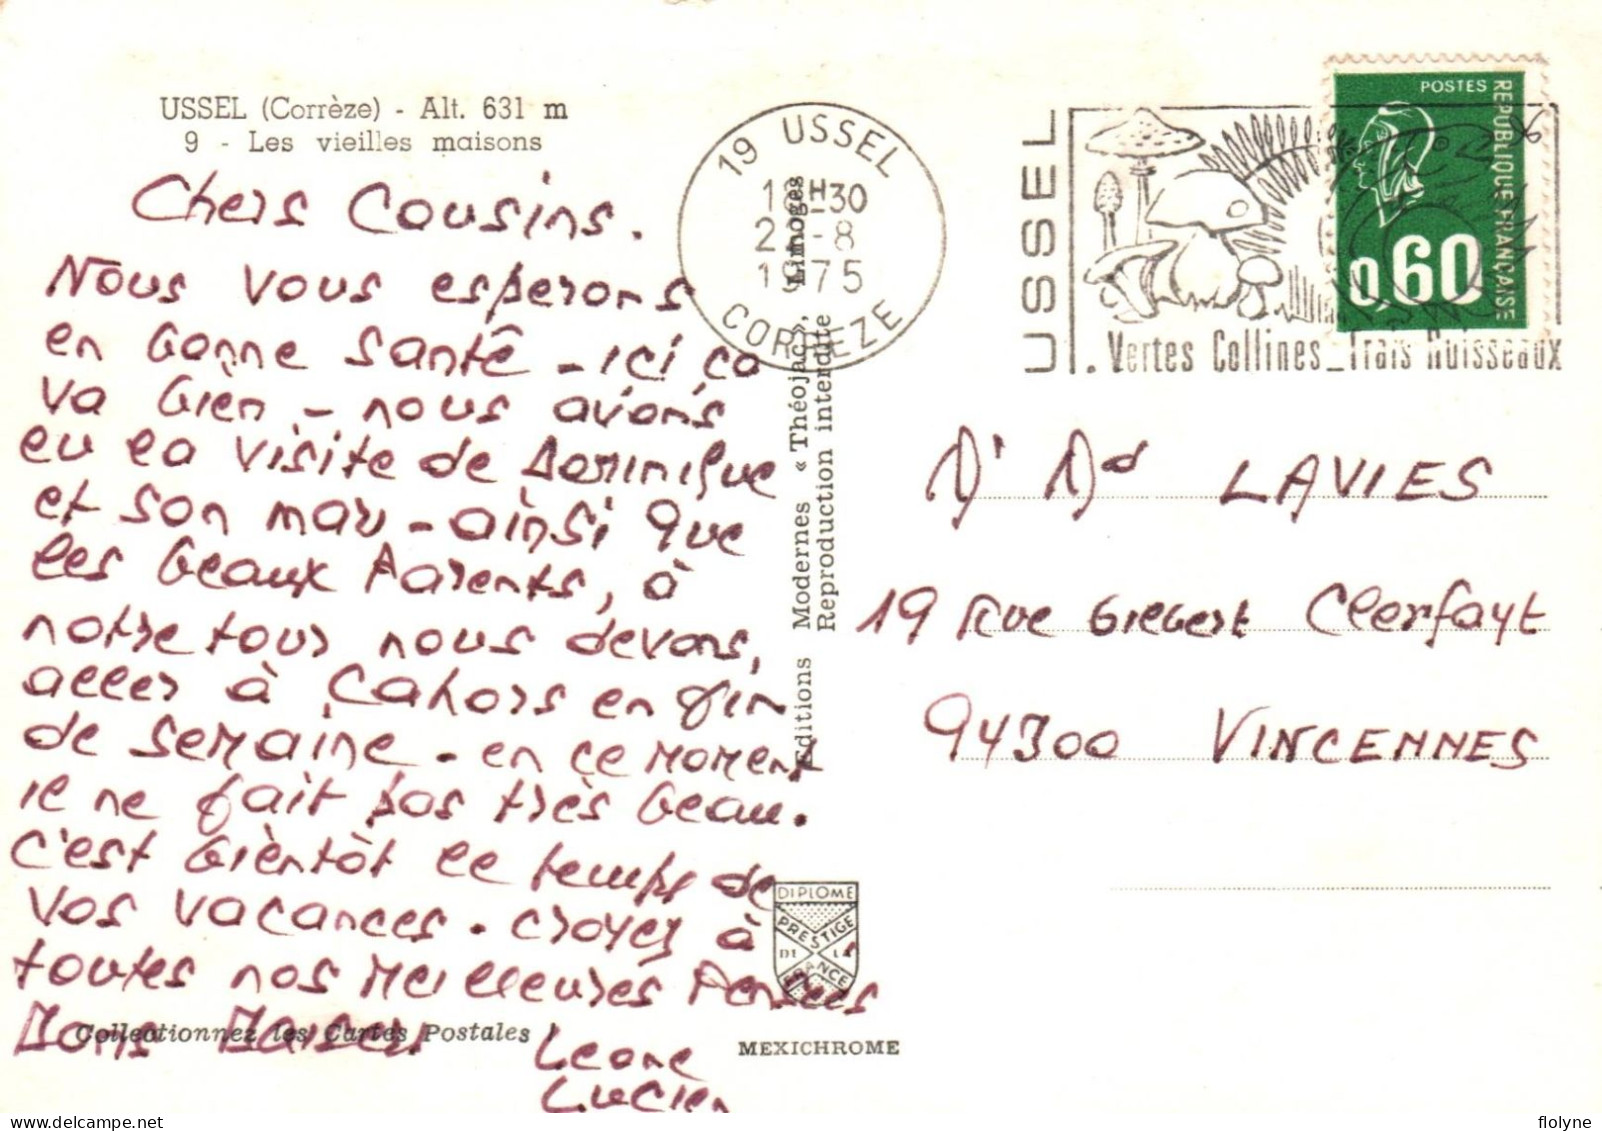 USSEL (Corrèze) - Alt. 631 m
9 - Les vieilles maisons
Chers Cousins.
Nous vous esperons
en bonne Santé - ici ça
va bièn - nous avions
eu la visite de Dominique
et son mari - ainsi que
les beaux Parents, à
notre tour nous devons,
aller à Cahors en fin
de semaine - en ce moment
il ne fait pas très beau.
C'est bièntôt le temps de
vos vacances. croyez à
toutes nos meilleures Pensées
Bons Baisers
Leone
Lucien
Collectionnez les Cartes Postales !
Editions Modernes « Théojac », Limoges
Reproduction interdite
DIPLOME
PRESTIGE
DE LA
FRANCE
MEXICHROME
19 USSEL
18H30
-8
1975
CORREZE
USSEL
Vertes Collines_Frais Ruisseaux
POSTES
REPUBLIQUE FRANÇAISE
0,60
Mr Md LAVIES
19 Rue Gilbert Clerfayt
94300 VINCENNES
flolyne